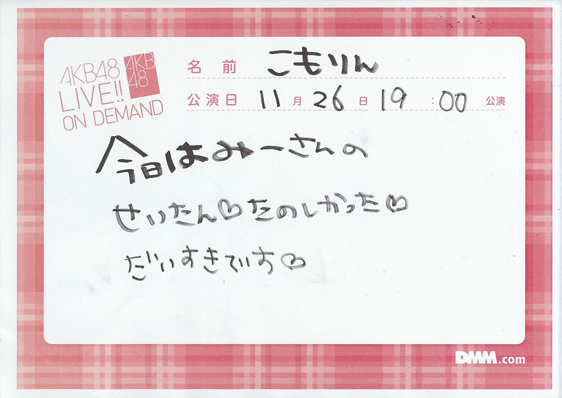 AKB48
LIVE!!
ON DEMAND
AKB
48
名前 こもりん
公演日 11月26日19:00公演
今日はみーさんの
せいたん♡たのしかった♡
だいすきです♡
DMM.com